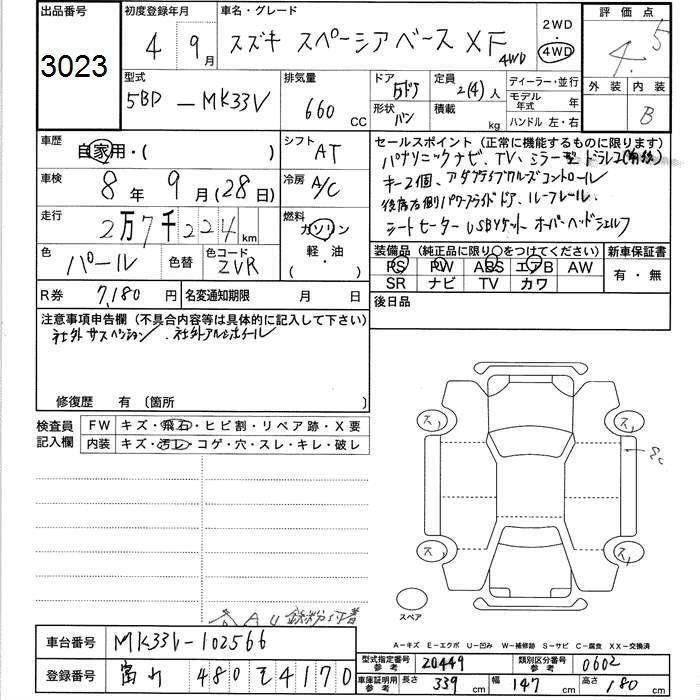 出品番号
3023
初度登録年月
4 9月
車名・グレード
スズキ スペーシアベース XF 4WD
2WD
・
4WD
評価点
4.5
型式
5BD-MK33V
排気量
660 CC
ドア
5ドア
形状
バン
定員
2(4)人
積載
kg
ディーラー・並行
モデル年式 年
ハンドル 左・右
外装
内装
B
車歴
自家用・( )
シフト
AT
車検
8年9月(28日)
冷房
A/C
走行
2万7千224km
燃料
ガソリン
軽・油
・( )
色
パール
色替
色コード
ZVR
R券
7,180円
名変通知期限 月 日
セールスポイント(正常に機能するものに限ります)
パナソニックナビ、TV、ミラー型ドラレコ(前後)
キー2個、アダプティブクルーズコントロール
後席右側パワースライドドア、ルーフレール
シートヒーター USBソケット オーバーヘッドシェルフ
装備品(純正品に限り〇をつけてください)
新車保証書
PS PW ABS エアB AW
SR ナビ TV カワ
有・無
後日品
注意事項申告欄(不具合内容等は具体的に記入して下さい)
社外サスペンション、社外アルミホイール
修復歴 有〔箇所 〕
検査員
記入欄
FW キズ・飛石・ヒビ割・リペア跡・X要
内装 キズ・汚レ・コゲ・穴・スレ・キレ・破レ
ス、
ス、
ス、
ス、
スペア
A 鉄粉付着
A-キズ E-エクボ U-凹み W-補修跡 S-サビ C-腐食 XX-交換済
車台番号
MK33V-102566
登録番号
富山 480 を 4170
型式指定番号
参考
20449
類別区分番号
参考
0602
車庫証明用
参考
長さ 339cm
幅 147cm
高さ 180cm